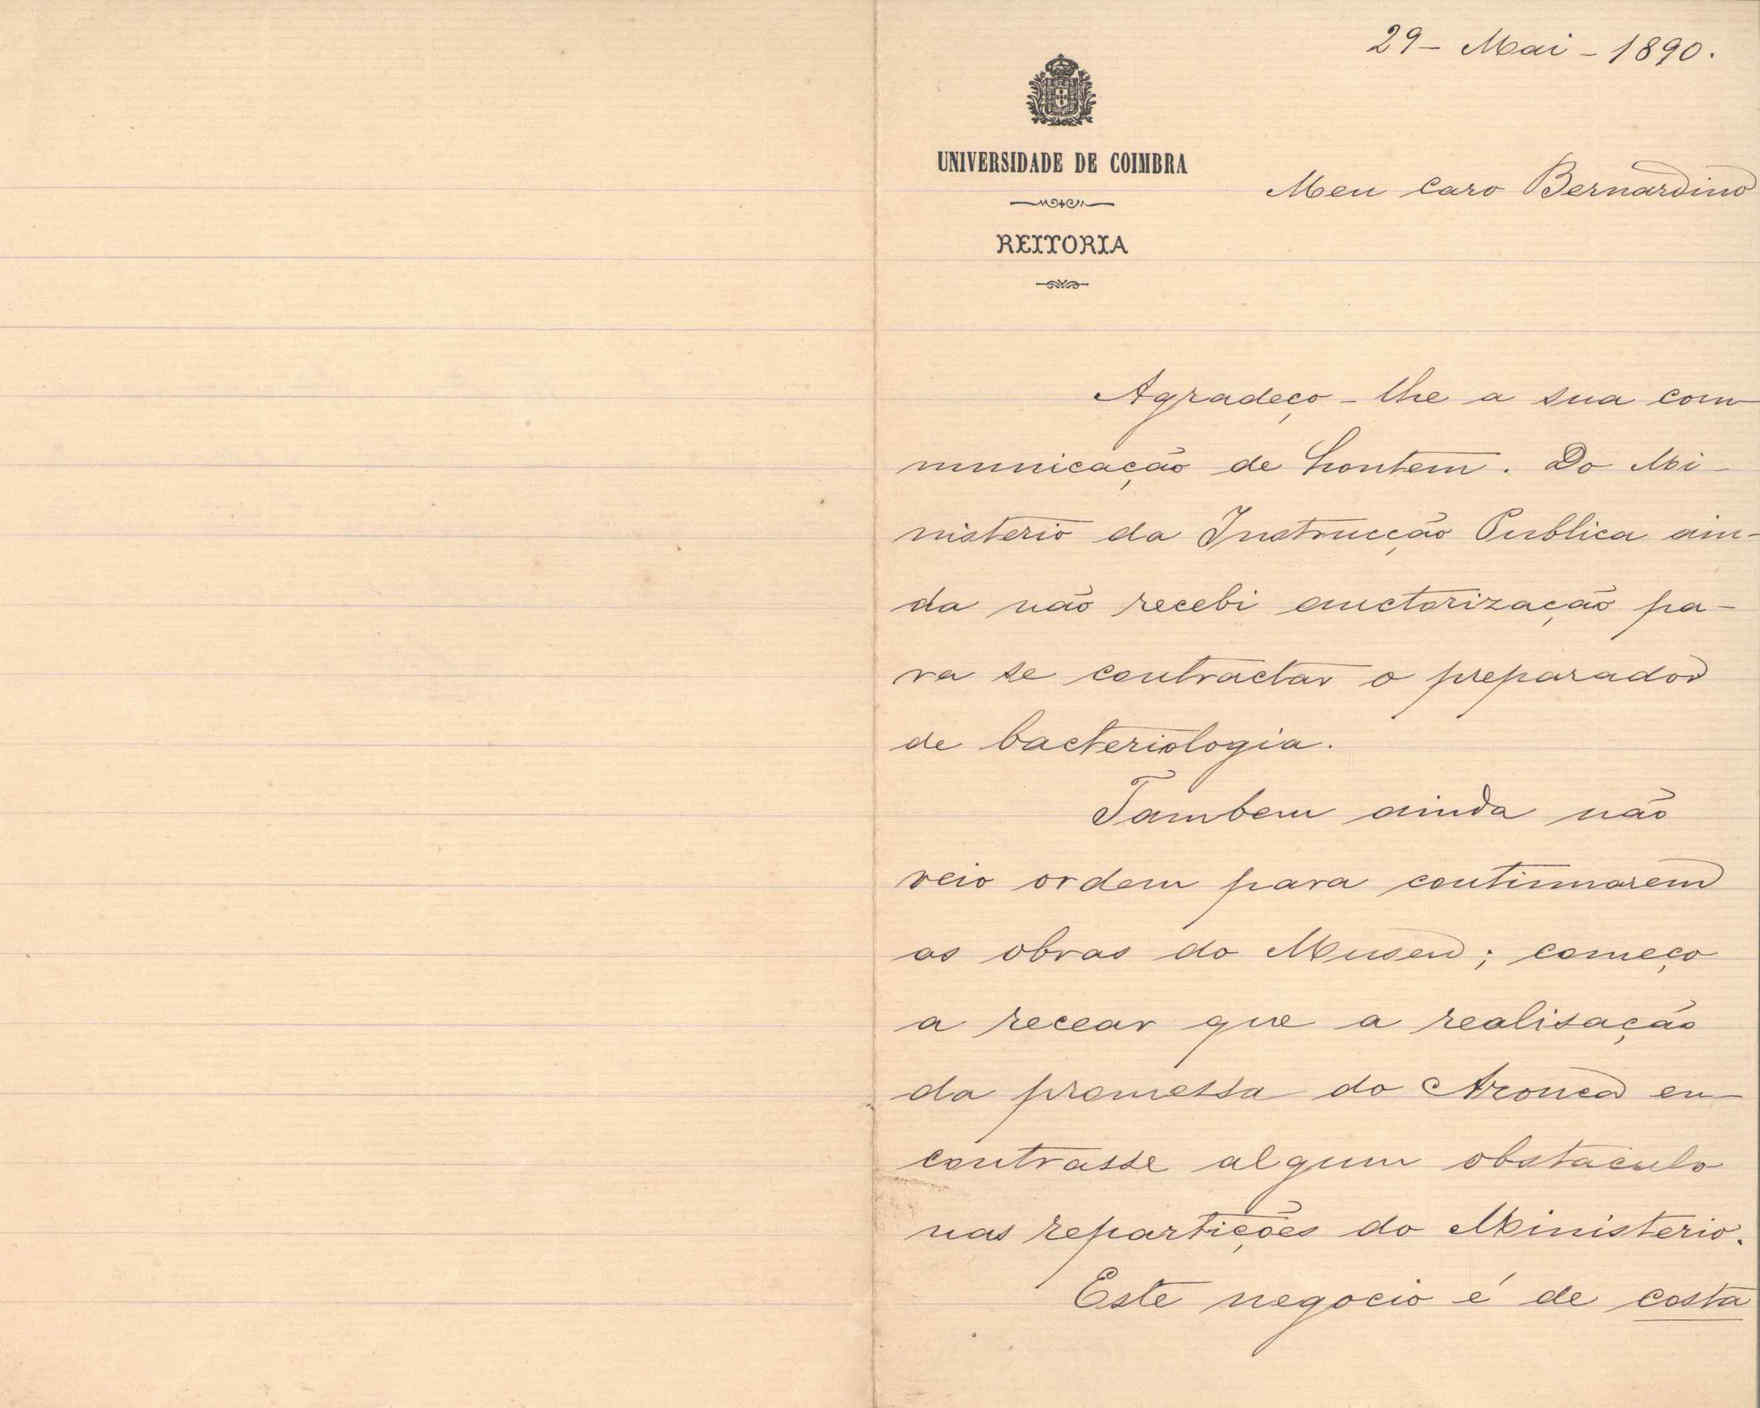 29 - Mai - 1890.
UNIVERSIDADE DE COIMBRA
REITORIA
Meu caro Bernardino
Agradeço-lhe a sua com-
municação de hontem. Do Mi-
nisterio da Instrucção Publica ain-
da não recebi auctorização pa-
ra se contractar o preparador
de bacteriologia.
Tambem ainda não
veio ordem para continuarem
as obras do Museu; começo
a recear que a realisação
da promessa do Arouca en-
contrasse algum obstaculo
nas repartições do Ministerio.
Este negocio é de costa